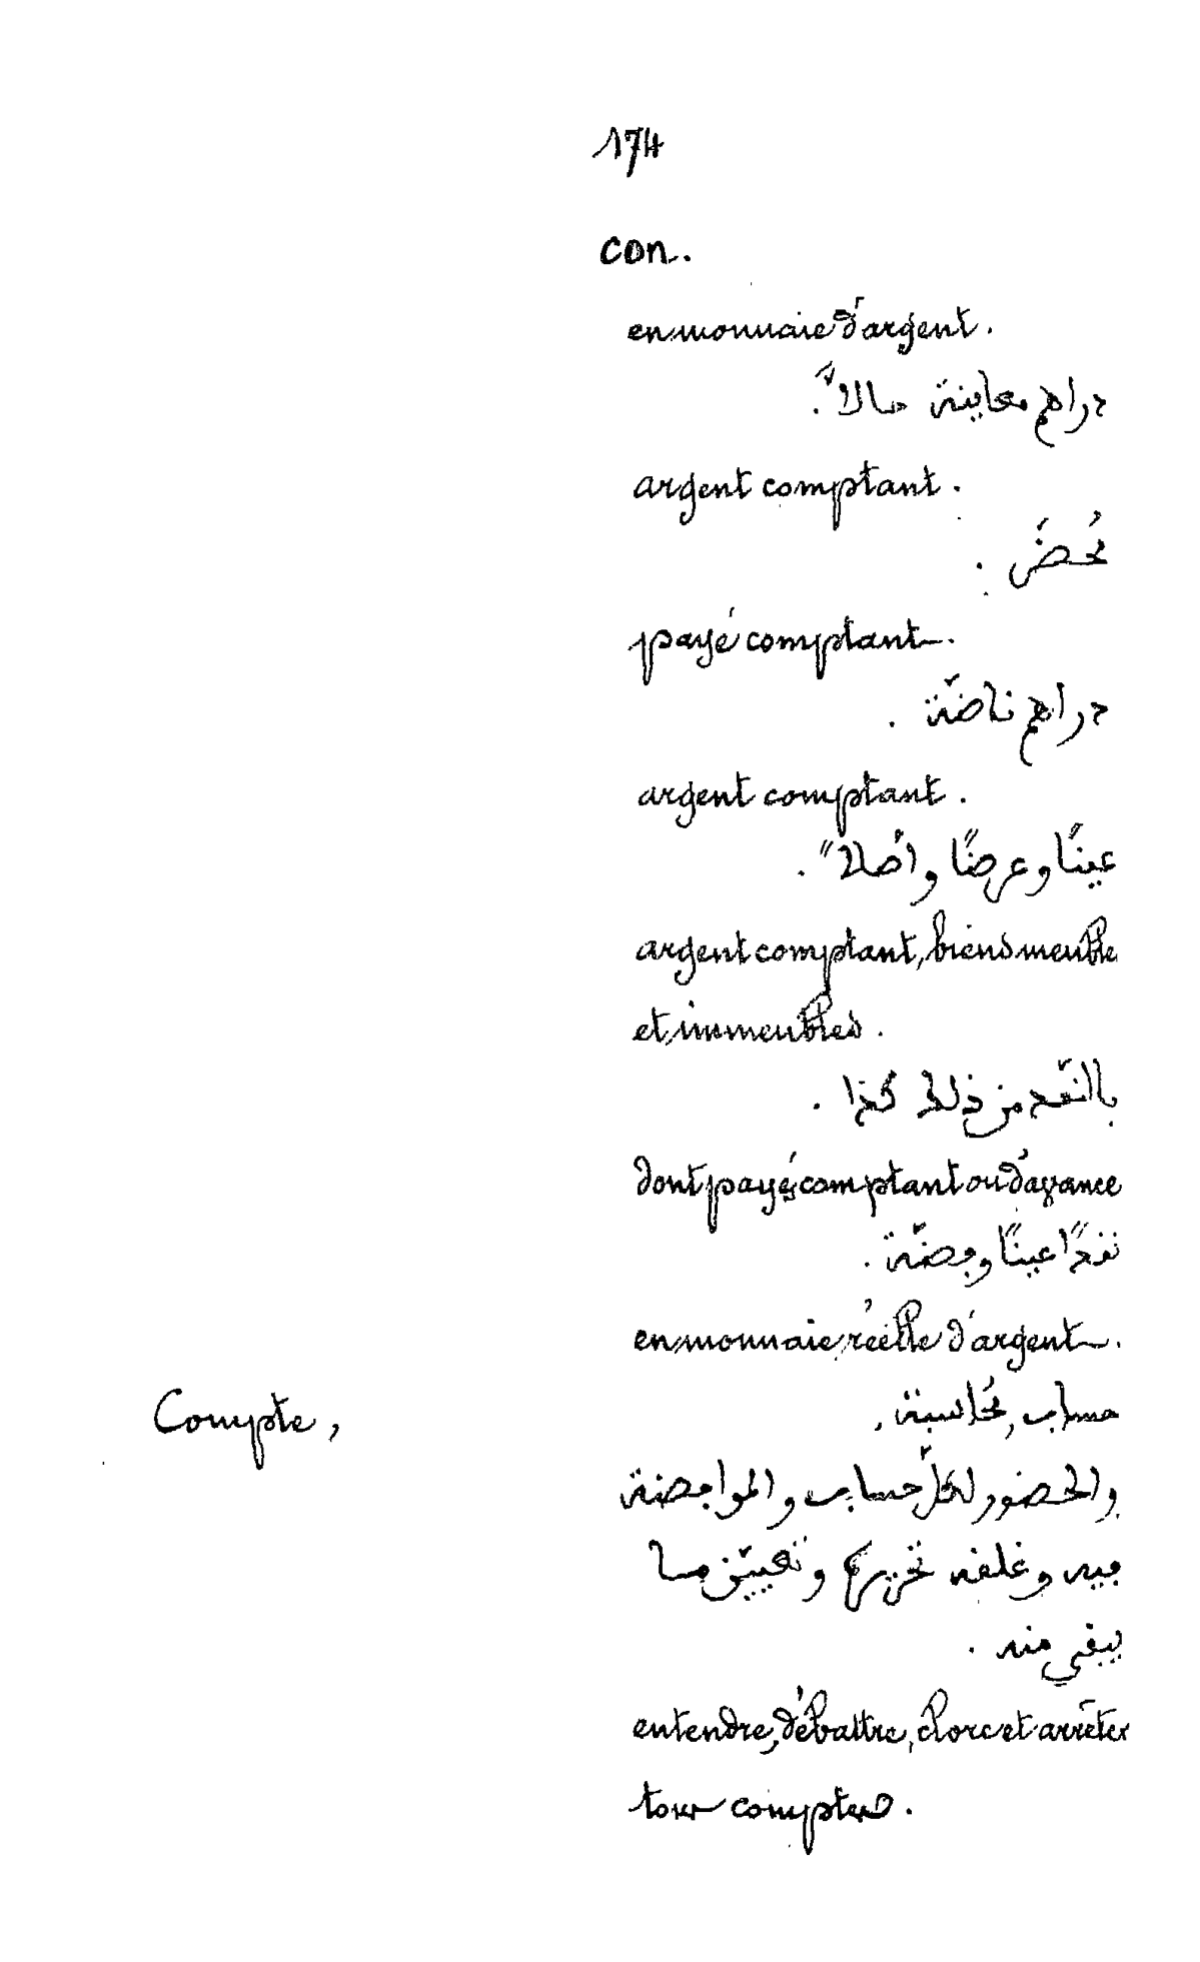 174
con.
en monnaie d'argent.
دراهم معاينة حالاً.
argent comptant.
مُحضَ.
payé comptant.
دراهم ناضّة.
argent comptant.
عينًا وعرضًا وأصلاً.
argent comptant, biens meuble
et immeubles.
بالنّقد من ذلك كذا.
dont payé comptant ou d'avance
نقدًا عينًا وفضّة.
en monnaie réelle d'argent.
Compte, حساب, مُحاسبة,
والحضور لكلّ حساب والموافضة
فيه وغلقه تحريره وتعيين ما
يبقى منه.
entendre, débattre, clore et arrêter
tour comptes.